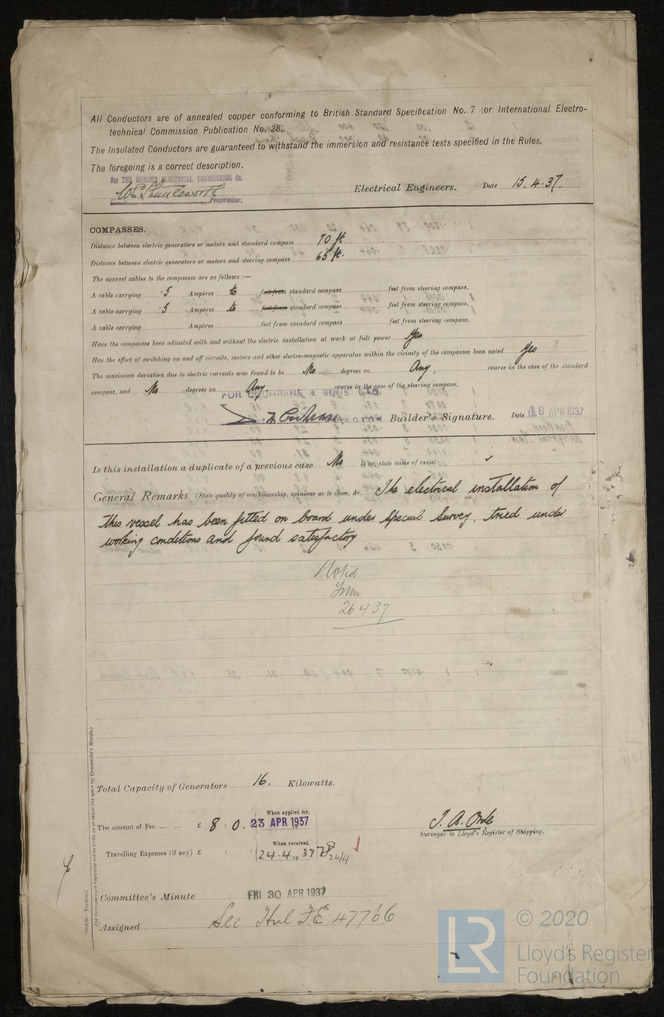 All Conductors are of annealed copper conforming to British Standard Specification No. 7 (or International Electro-
technical Commission Publication No. 28).
The Insulated Conductors are guaranteed to withstand the immersion and resistance tests specified in the Rules.
The foregoing is a correct description.
For THE HUMBER ELECTRICAL ENGINEERING Co.
Proprietor. Electrical Engineers. Date 15.4.37.
COMPASSES.
Distance between electric generators or motors and standard compass 70 ft
Distance between electric generators or motors and steering compass 65 ft.
The nearest cables to the compasses are as follows:—
A cable carrying .5 Ampères to feet from standard compass feet from steering compass.
A cable carrying .5 Ampères to feet from standard compass feet from steering compass.
A cable carrying Ampères feet from standard compass feet from steering compass.
Have the compasses been adjusted with and without the electric installation at work at full power Yes
Has the effect of switching on and off circuits, motors and other electro-magnetic apparatus within the vicinity of the compasses been noted Yes
The maximum deviation due to electric currents was found to be No degrees on Any. course in the case of the standard
compass, and No degrees on Any course in the case of the steering compass.
FOR COCHRANE & SONS LTD.
Cochrane DIRECTOR Builder's Signature. Date 16 APR 1937
Is this installation a duplicate of a previous case No If so, state name of vessel
General Remarks (State quality of workmanship, opinions as to class, &c. The electrical installation of
this vessel has been fitted on board under Special Survey, tried under
working conditions and found satisfactory
Noted
26.4.37
Total Capacity of Generators 16. Kilowatts.
The amount of Fee ... ... £ 8 : 0. When applied for, 23 APR 1937
Surveyor to Lloyd's Register of Shipping.
Travelling Expenses (if any) £ When received, 24.4.1937 26/4
Committee's Minute FRI 30 APR 1937
Assigned See Hul FE 47766
LR © 2020
Lloyd's Register
Foundation